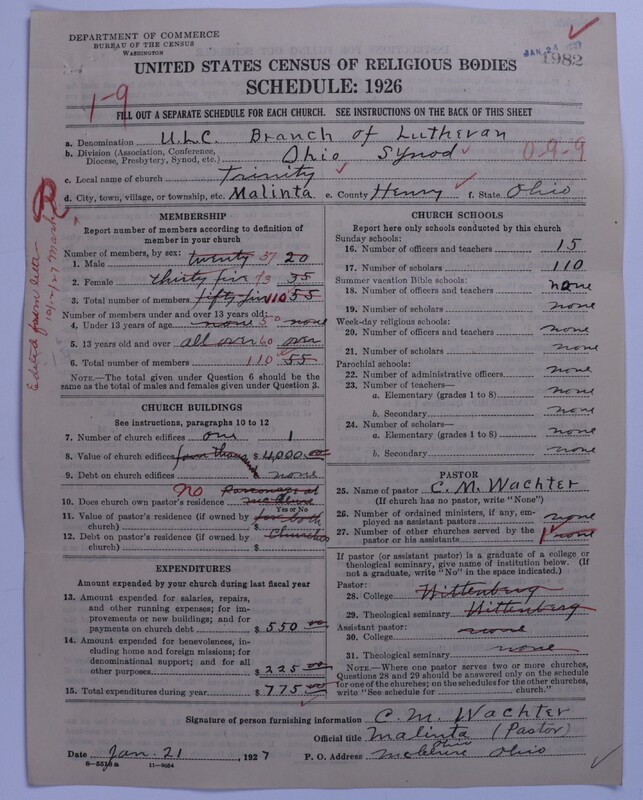 DEPARTMENT OF COMMERCE
BUREAU OF THE CENSUS
WASHINGTON
JAN 28
1982
UNITED STATES CENSUS OF RELIGIOUS BODIES
SCHEDULE: 1926
1-9
FILL OUT A SEPARATE SCHEDULE FOR EACH CHURCH. SEE INSTRUCTIONS ON THE BACK OF THIS SHEET
a. Denomination U.L.C. Branch of Lutheran
b. Division (Association, Conference, Diocese, Presbytery, Synod, etc.) Ohio Synod 0-9-9
c. Local name of church Trinity
d. City, town, village, or township, etc. Malinta e. County Henry f. State Ohio
Edited from letter
MEMBERSHIP
Report number of members according to definition of
member in your church
Number of members, by sex:
1. Male twenty 37 20
2. Female thirty five 73 35
3. Total number of members fifty five 110 55
Number of members under and over 13 years old:
4. Under 13 years of age none 50 none
5. 13 years old and over all over 60 over
6. Total number of members 110 55
NOTE.—The total given under Question 6 should be the
same as the total of males and females given under Question 3.
CHURCH BUILDINGS
See instructions, paragraphs 10 to 12
7. Number of church edifices one 1
8. Value of church edifices four thousand $ 4,000.00
9. Debt on church edifices none
No Parsonage at
10. Does church own pastor's residence McClure
Yes or No
11. Value of pastor's residence (if owned by church) $ for both
12. Debt on pastor's residence (if owned by church) $ Churches
EXPENDITURES
Amount expended by your church during last fiscal year
13. Amount expended for salaries, repairs,
and other running expenses; for im-
provements or new buildings; and for
payments on church debt $ 550.00
14. Amount expended for benevolences, in-
cluding home and foreign missions; for
denominational support; and for all
other purposes $ 225.00
15. Total expenditures during year $ 775.00
CHURCH SCHOOLS
Report here only schools conducted by this church
Sunday schools:
16. Number of officers and teachers 15
17. Number of scholars 110
Summer vacation Bible schools:
18. Number of officers and teachers none
19. Number of scholars none
Week-day religious schools:
20. Number of officers and teachers none
21. Number of scholars none
Parochial schools:
22. Number of administrative officers none
23. Number of teachers—
a. Elementary (grades 1 to 8) none
b. Secondary none
24. Number of scholars—
a. Elementary (grades 1 to 8) none
b. Secondary none
PASTOR
25. Name of pastor C. M. Wachter
(If church has no pastor, write "None")
26. Number of ordained ministers, if any, em-
ployed as assistant pastors none
27. Number of other churches served by the
pastor or his assistants 1 none
If pastor (or assistant pastor) is a graduate of a college or
theological seminary, give name of institution below. (If
not a graduate, write "No" in the space indicated.)
Pastor:
28. College Wittenberg
29. Theological seminary Wittenberg
Assistant pastor:
30. College none
31. Theological seminary none
NOTE.—Where one pastor serves two or more churches,
Questions 28 and 29 should be answered only on the schedule
for one of the churches; on the schedules for the other churches,
write "See schedule for church."
Signature of person furnishing information C. M. Wachter
Official title Malinta (Pastor)
Ohio
Date Jan. 21, 1927 P. O. Address McClure Ohio
11-9064